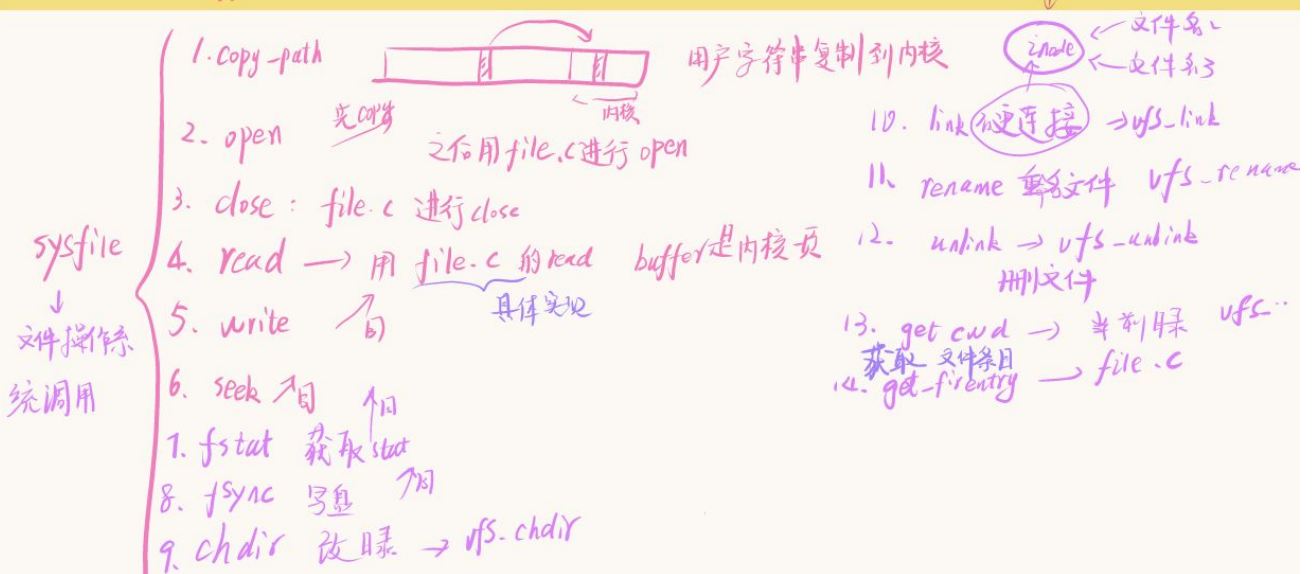 sysfile
↓
文件操作系
统调用
1. copy-path 用户字符串复制到内核
内核
2. open 先copy 之后用file.c进行open
3. close : file.c 进行close
4. read → 用 file.c 的read buffer是内核页
具体实现
5. write ↑同
6. seek ↑同
7. fstat 获取stat ↑同
8. fsync 写盘 ↑同
9. chdir 改目录 → vfs_chdir
inode ← 文件名1
← 文件名3
10. link 硬连接 → vfs_link
11. rename 文件 vfs_rename
12. unlink → vfs_unlink
删文件
13. get cwd → 当前目录 vfs…
获取 文件条目
14. → file.c